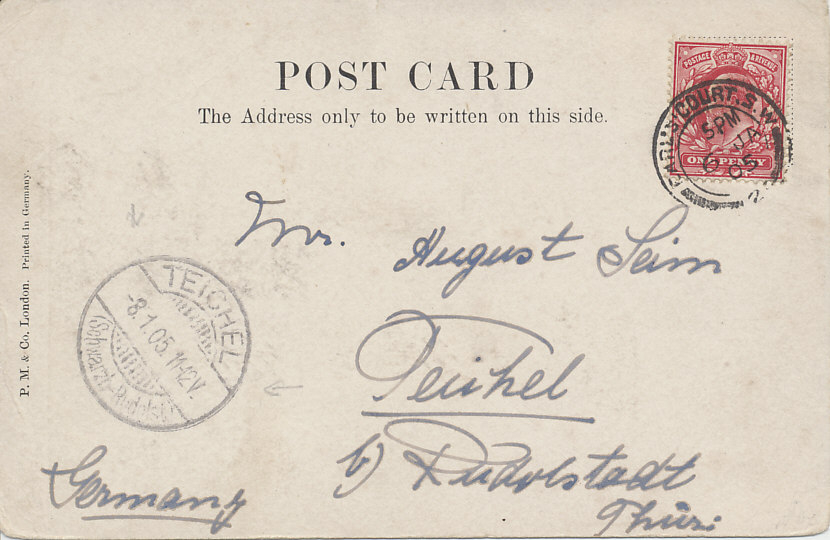 POST CARD
The Address only to be written on this side.
POSTAGE & REVENUE
ONE PENNY
COURT. S.W.
5 PM
JA 6
05
P. M. & Co. London. Printed in Germany.
TEICHEL
-8.1.05.11-12V.
Mr. August Seim
Teichel
b/ Rudolstadt
Thür:
Germany